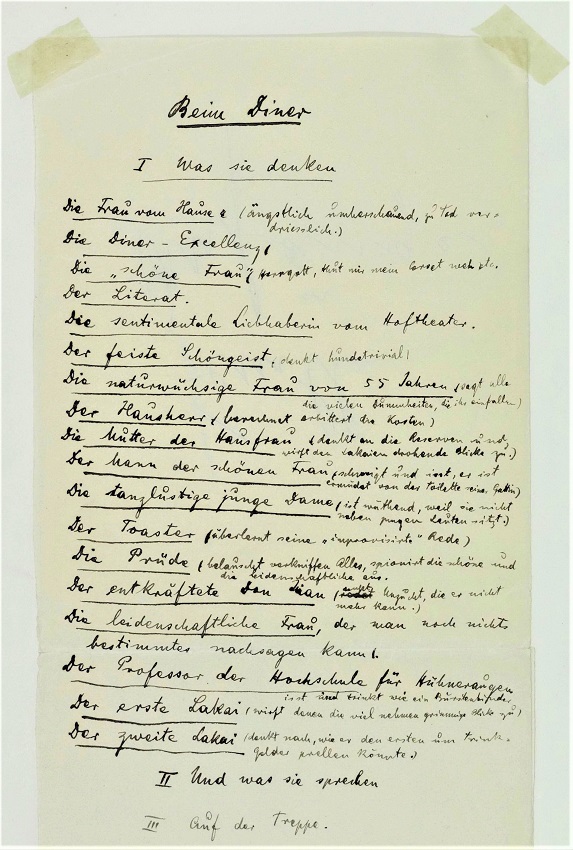 Beim Diner
I Was sie denken
Die Frau vom Hause (ängstlich umherschauend, zu Tod ver-
driesslich.)
Die Diner-Excellenz,
Die „schöne Frau“ (Herrgott, thut mir mein Corset weh etc.
Der Literat.
Die sentimentale Liebhaberin vom Hoftheater.
Der feiste Schöngeist, denkt hundetrivial!
Die naturwüchsige Frau von 55 Jahren (sagt alle
die vielen Dummheiten, die ihr einfallen)
Der Hausherr (berechnet erbittert die Kosten)
Die Mutter der Hausfrau (denkt an die Reserven und
wirft den Lakaien drohende Blicke zu.)
Der Mann der schönen Frau, (schweigt und isst, er ist
ermüdet von der Toilette seiner Gattin)
Die tanzlustige junge Dame (ist wüthend, weil sie nicht
neben jungen Leuten sitzt.)
Der Toaster (überlernt seine „improvisirte“ Rede)
Die Prüde (belauscht verkniffen Alles, spionirt die schöne und
die leidenschaftliche aus.
Der entkräftete Don Juan (die er nicht
mehr kann.)
Die leidenschaftliche Frau, der man noch nichts
bestimmtes nachsagen kann!.
Der Professor der Hochschule für Hühneraugen
isst und trinkt wie ein Bürstenbinder,
Der erste Lakai (wirft denen die viel nehmen grimmige Blicke zu)
Der zweite Lakai (denkt nach, wie er den ersten um Trink-
gelder prellen könnte.)
II Und was sie sprechen
III Auf der Treppe.